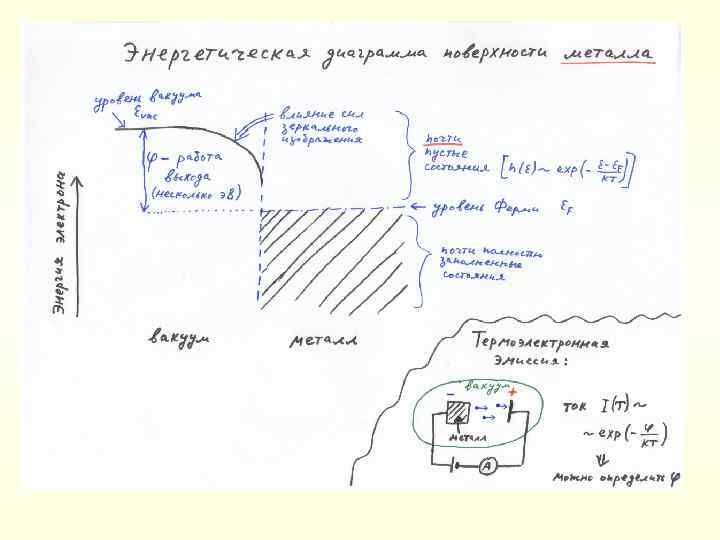 Энергетическая диаграмма поверхности металла
уровень вакуума
Evac
влияние сил
зеркального
изображения
φ – работа
выхода
(несколько эВ)
почти
пустые
состояния [n(ε) ~ exp(- ε-εF / кТ)]
← уровень Ферми εF
почти полностью
заполненные
состояния
Энергия электрона
вакуум
металл
Термоэлектронная
эмиссия:
вакуум
- +
металл
А
ток I(T) ~
~ exp(- φ / кТ)
⇓
можно определить φ